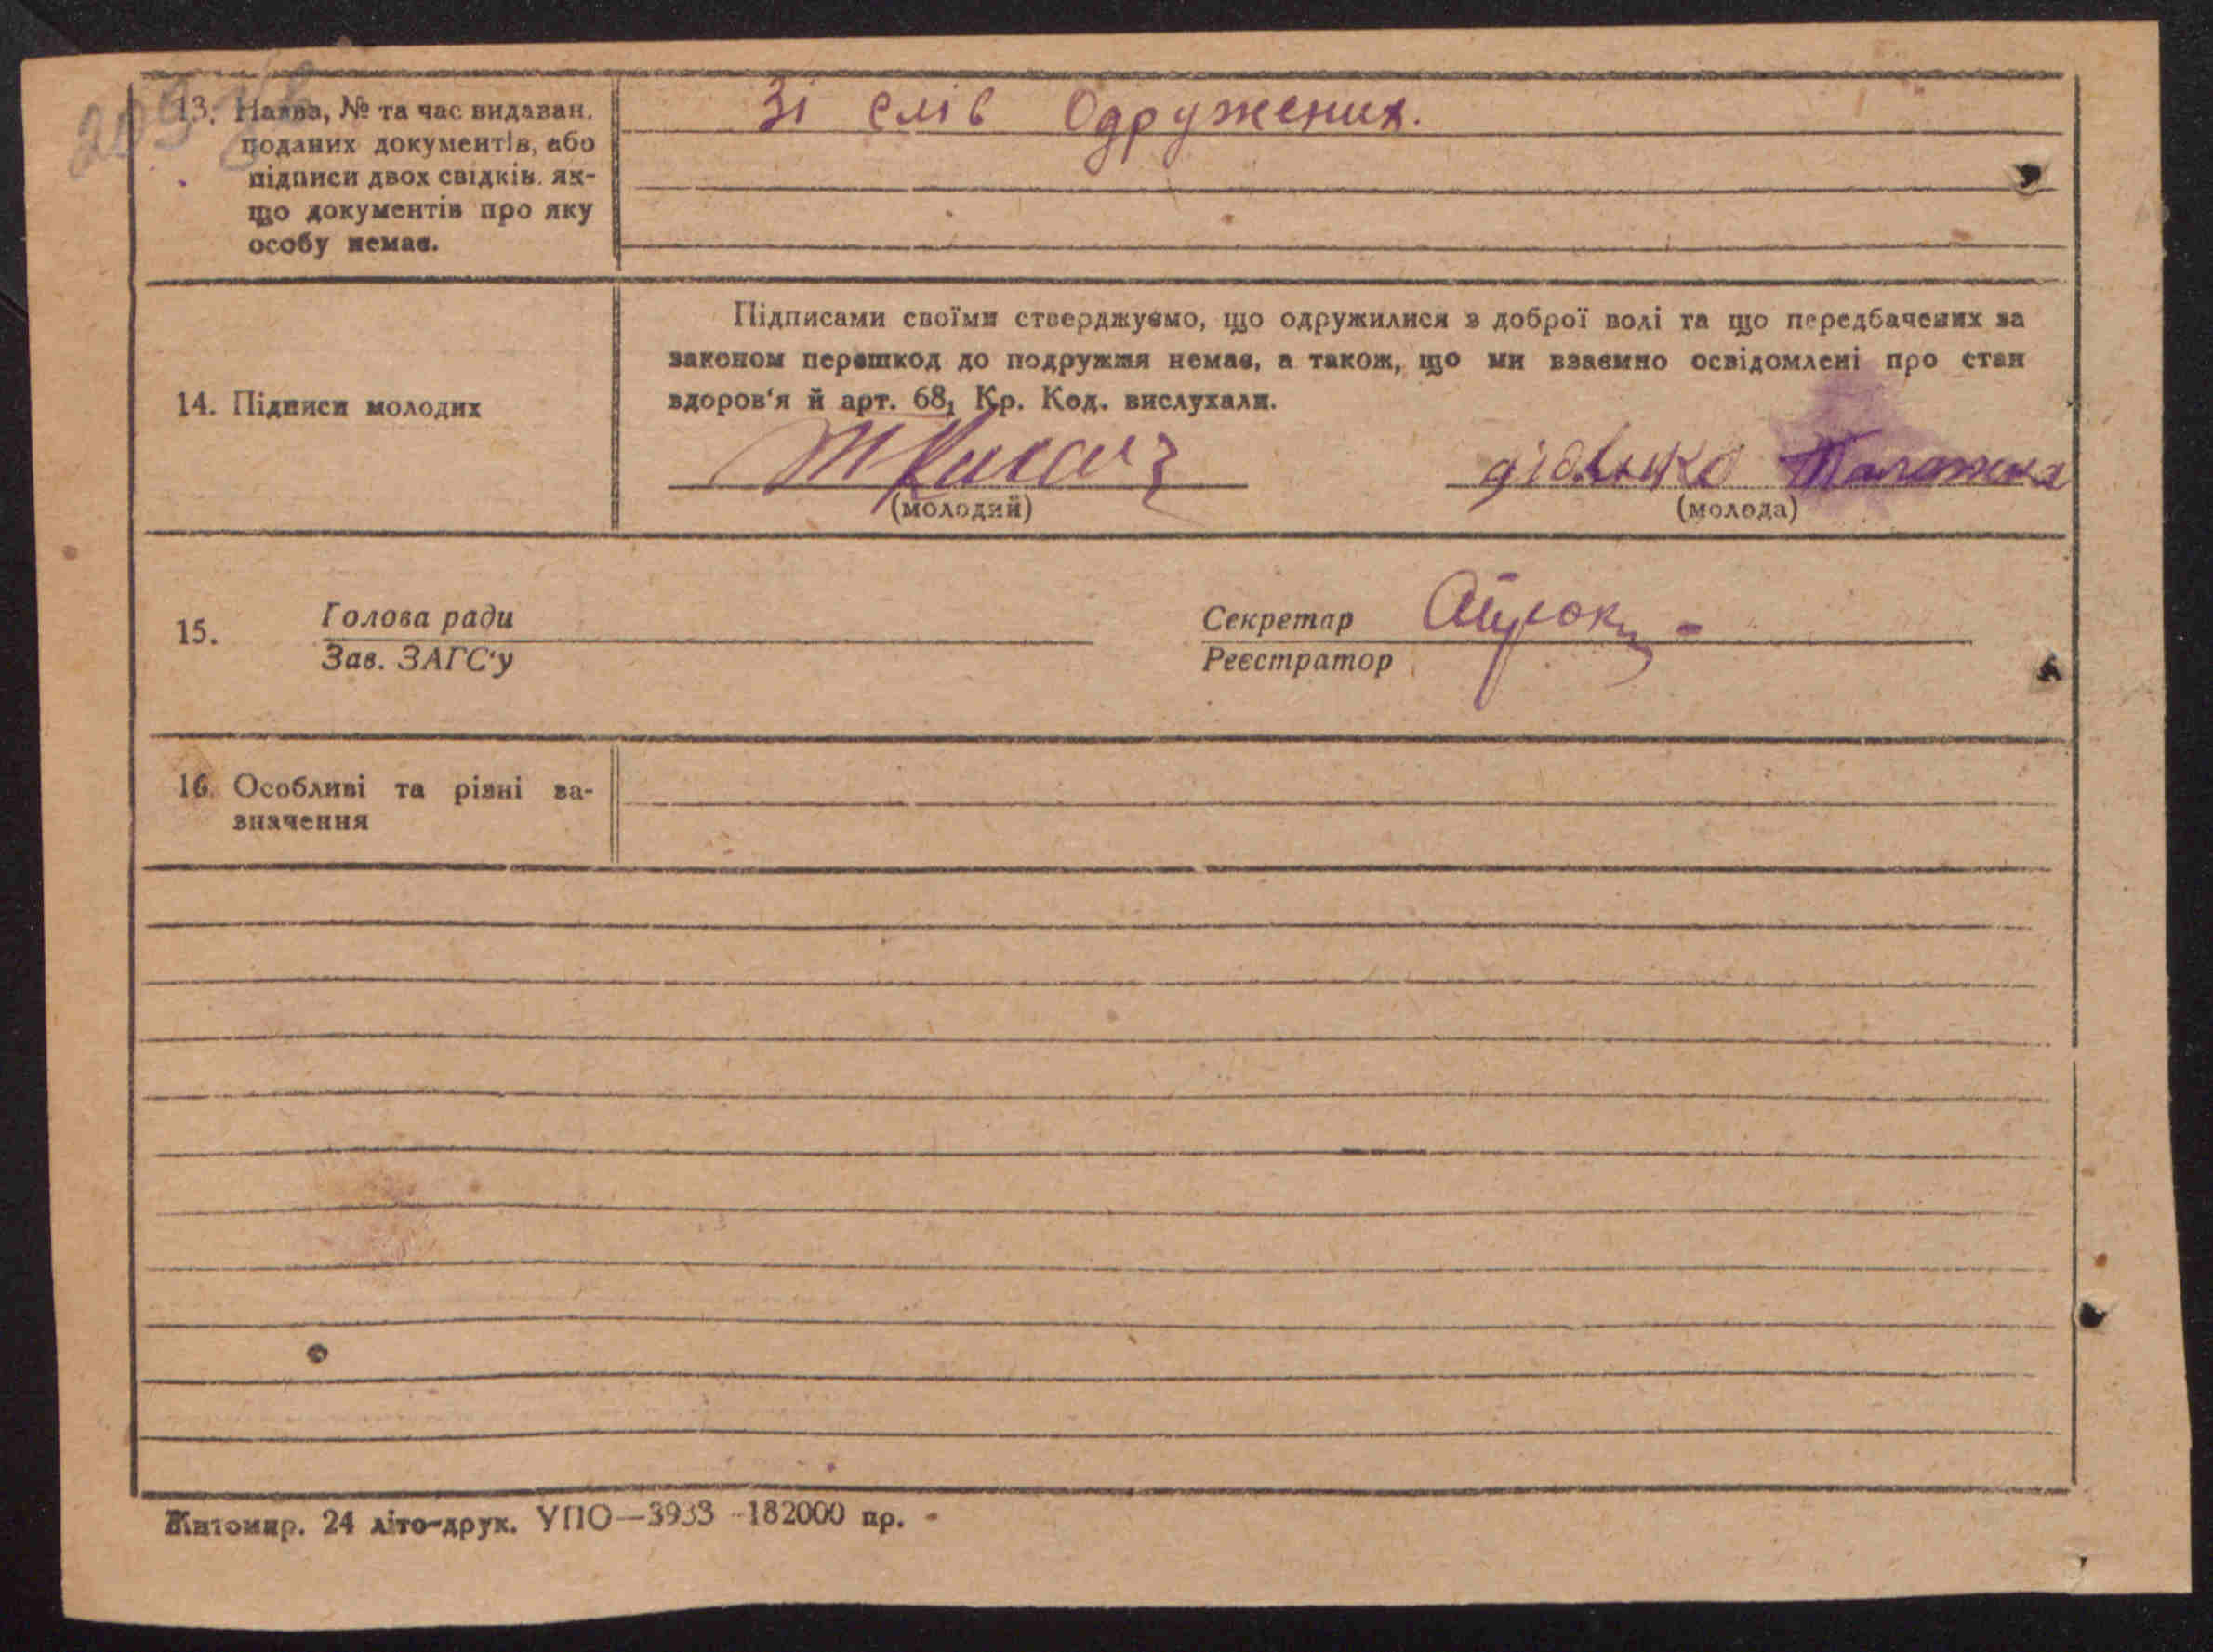 13. Назва, № та час видаван.
поданих документів, або
підписи двох свідків, як-
що документів про яку
особу немає.
Зі слів Одружених.
14. Підписи молодих
Підписами своїми стверджуємо, що одружилися з доброї волі та що передбачених за
законом перешкод до подружжя немає, а також, що ми взаємно освідомлені про стан
здоров'я й арт. 68, Кр. Код. вислухали.
(молодий)
(молода)
15.
Голова ради
Зав. ЗАГС'у
Секретар
Реєстратор
16. Особливі та різні за-
значення
Житомир. 24 літо-друк. УПО—3933 -182000 пр.